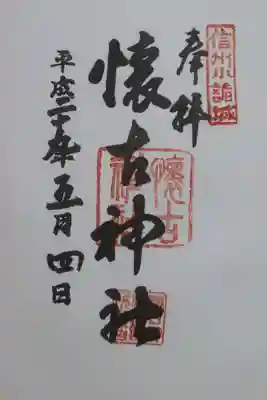 信州小諸城
奉拝
懐古神社
懐古神社
平成二十年五月四日